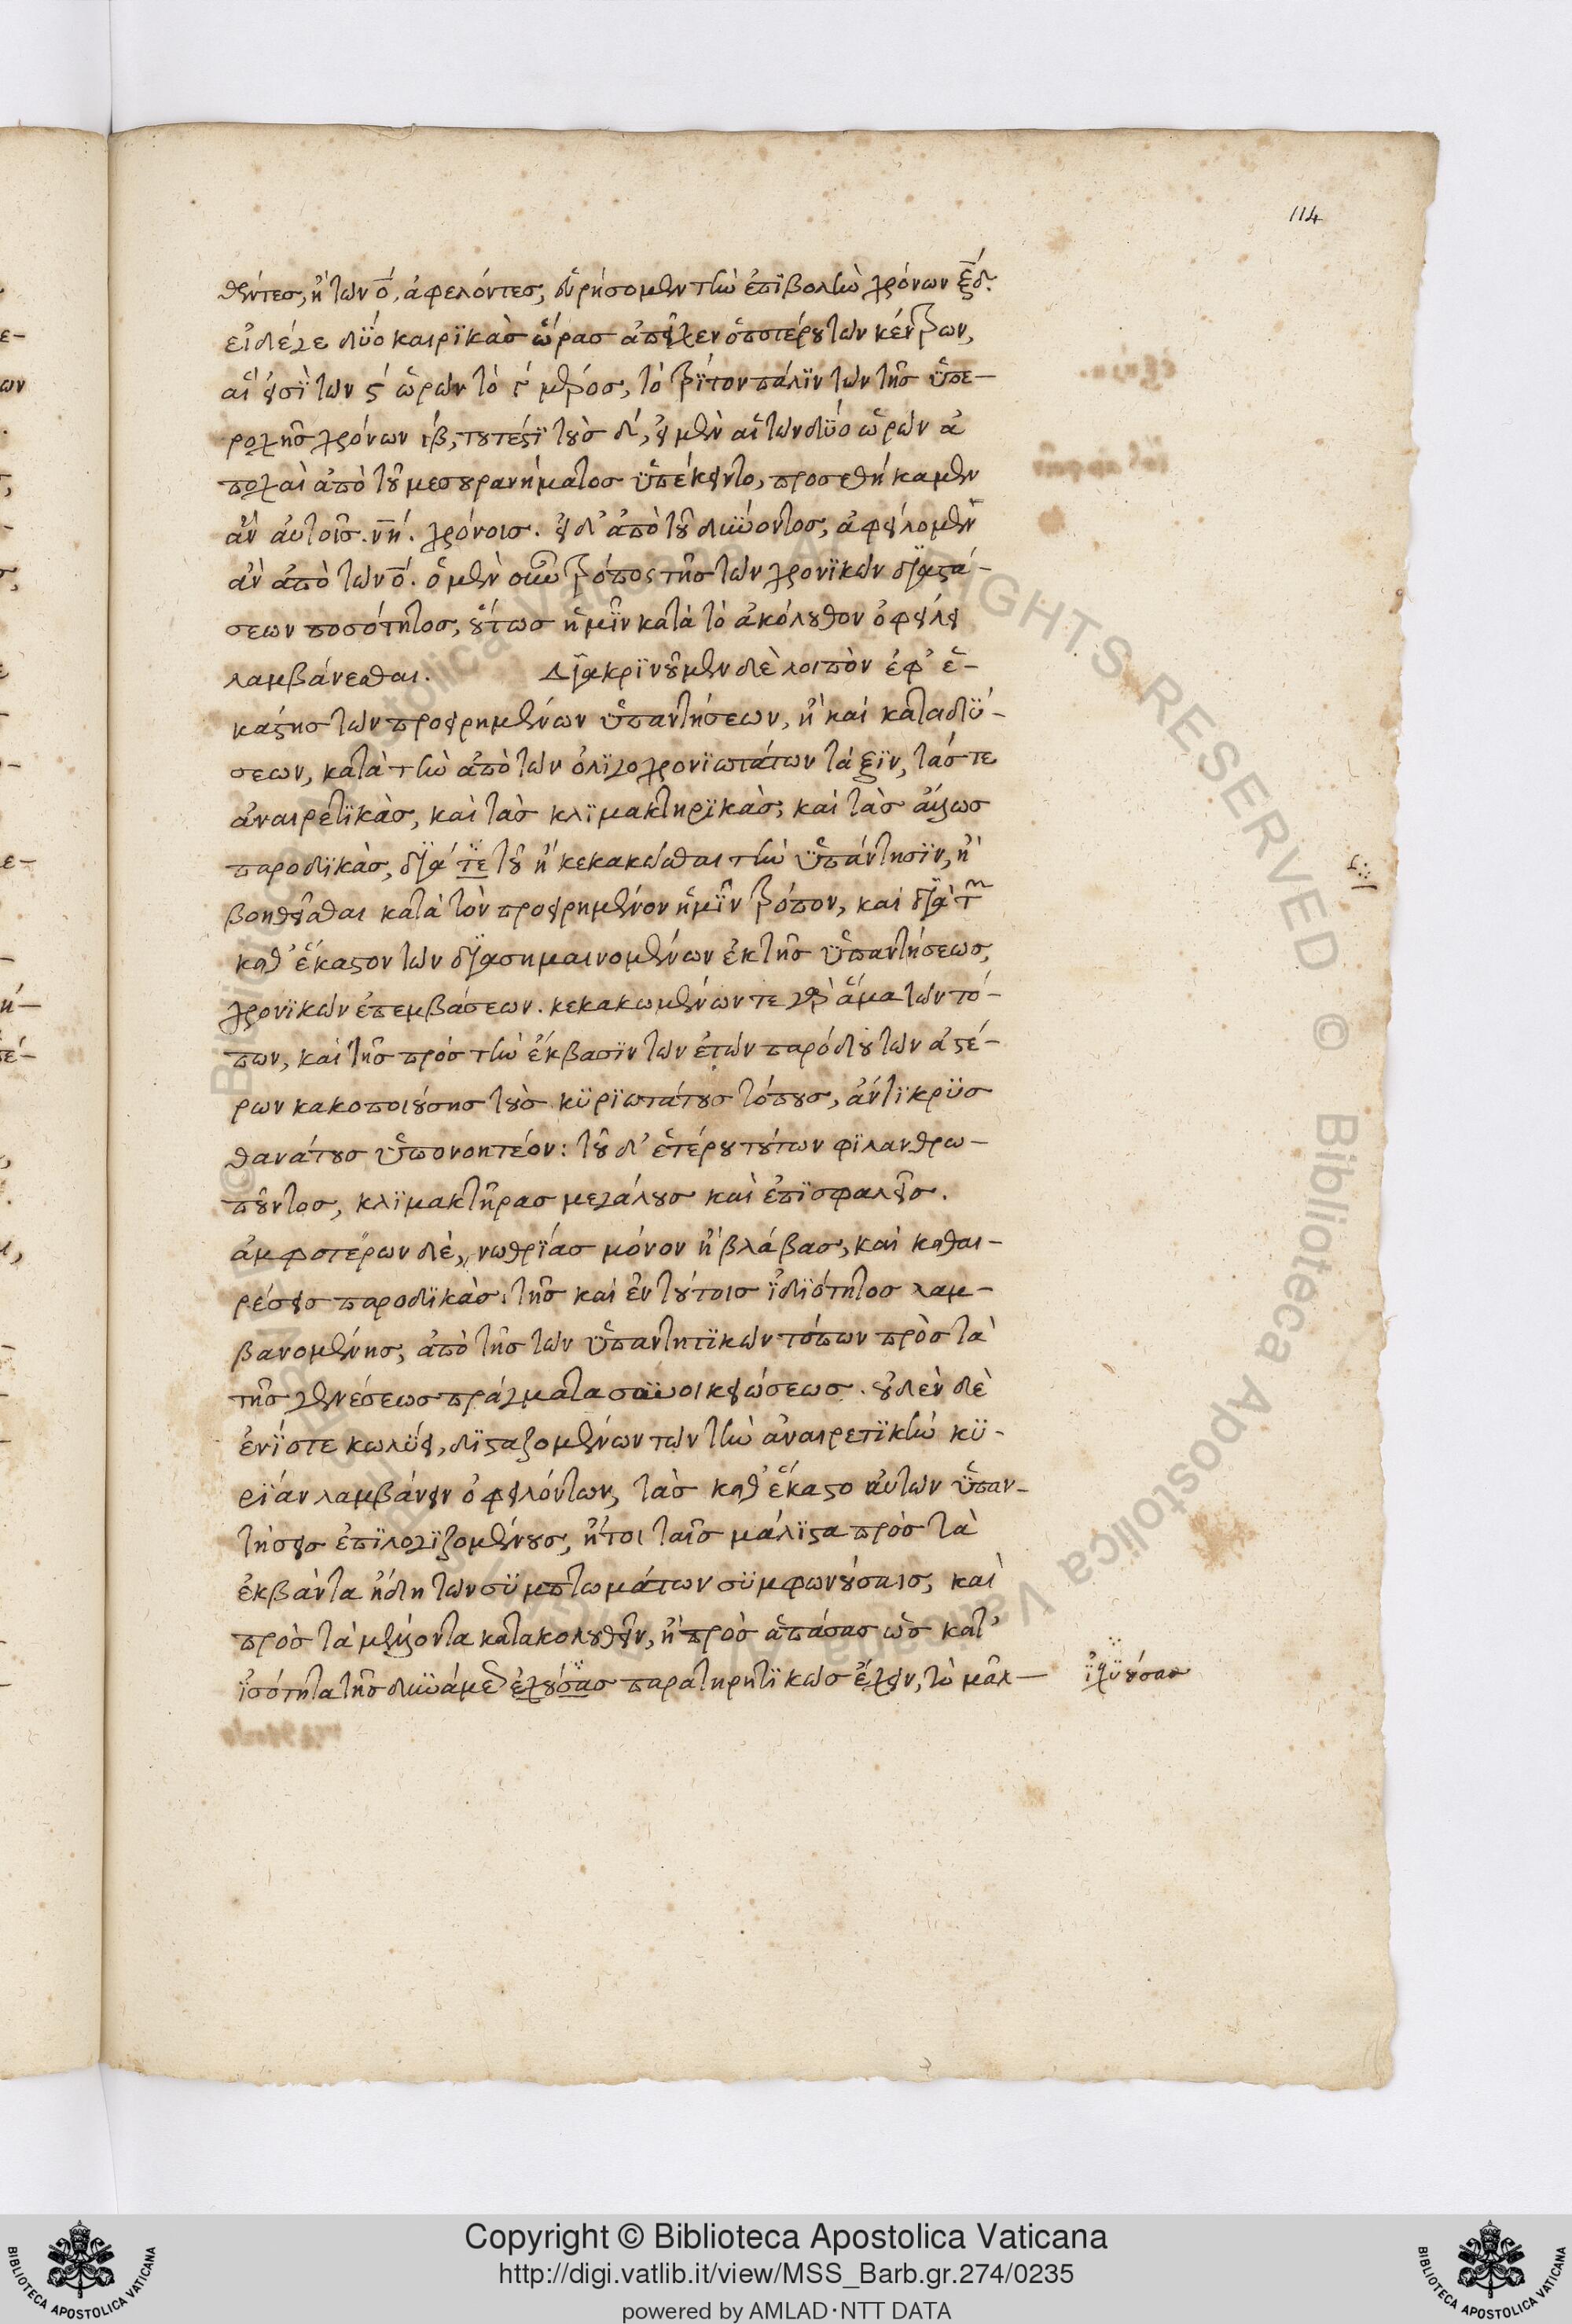 114
θέντες, ἢ τῶν ο̅, ἀφελόντες, εὑρήσομεν τὴν ἐπϊβολὴν χρόνων ξ̅δ.
εἰ δέ γε δύο καιρϊκὰς ὥρας ἀπεῖχεν ὁποτέρου τῶν κέντρων,
αἵ εἰσϊ τῶν ϛ ὡρῶν τὸ γ μέρος, τὸ τρίτον πάλϊν τῶν τῆς ὑπε-
ροχῆς χρόνων ιβ, τουτέστϊ τοὺς δ, εἰ μὲν αἱ τῶν δύο ὡρῶν ἀ
ποχαὶ ἀπὸ τοῦ μεσουρανήματος ὑπέκειντο, προσεθήκαμεν
ἂν αὐτοῖς. ν̅η. χρόνοις. εἰ δ' ἀπὸ τοῦ δύνοντος, ἀφείλομεν
ἂν ἀπὸ τῶν ο̅. ὁ μὲν οὖν τρόπος τῆς τῶν χρονϊκῶν δϊαστά-
σεων ποσότητος, οὕτως ἡμῖν κατὰ τὸ ἀκόλουθον ὀφείλει
λαμβάνεσθαι. Δϊακρϊνοῦμεν δὲ λοιπὸν ἐφ' ἑ-
κάστης τῶν προειρημένων ὑπαντήσεων, ἢ καὶ καταδύ-
σεων, κατὰ τὴν ἀπὸ τῶν ὀλϊγοχρονϊωτάτων τάξϊν, τάς τε
ἀναιρετϊκὰς, καὶ τὰς κλϊμακτηρϊκὰς, καὶ τὰς ἄλλως
παροδϊκὰς, δϊά τε τοῦ ἢ κεκακῶσθαι τὴν ὑπάντησϊν, ἢ
βοηθεῖσθαι κατὰ τὸν προειρημένον ἡμῖν τρόπον, καὶ δϊὰ τῶν
καθ' ἕκαστον τῶν δϊασημαινομένων ἐκ τῆς ὑπαντήσεως,
χρονϊκῶν ἐπεμβάσεων. κεκακωμένων τε γὰρ ἅμα τῶν τό-
πων, καὶ τῆς πρὸς τὴν ἔκβασϊν τῶν ἐτῶν παρόδου τῶν ἀστέ-
ρων κακοποιούσης τοὺς κϋρϊωτάτους τόπους, ἄντϊκρϋς
θανάτους ὑπονοητέον: τοῦ δ' ἑτέρου τούτων φϊλανθρω-
ποῦντος, κλϊμακτῆρας μεγάλους καὶ ἐπϊσφαλεῖς.
ἀμφοτέρων δὲ, νωθρϊάς μόνον ἢ βλάβας, καὶ καθαι-
ρέσεις παροδϊκὰς. τῆς καὶ ἐν τούτοις ἰδϊότητος λαμ-
βανομένης, ἀπὸ τῆς τῶν ὑπαντητϊκῶν τόπων πρὸς τὰ
τῆς γενέσεως πράγματα συνοικειώσεως. οὐδὲν δὲ
ἐνίοτε κωλύει, δϊσταζομένων τῶν τὴν ἀναιρετϊκὴν κϋ-
ρϊάν λαμβάνειν ὀφειλόντων, τὰς καθ' ἕκαστο αὐτῶν ὑπαν-
τήσεις ἐπϊλογϊζομένους, ἤτοι ταῖς μάλϊστα πρὸς τὰ
ἐκβάντα ἤδη τῶν σϋμπτωμάτων σϋμφωνούσαις, καὶ
πρὸς τὰ μέλλοντα κατακολουθεῖν, ἢ πρὸς ἁπάσας ὡς κατ'
ἰσότητα τῆς δυνάμε ἐχούσας παρατηρητϊκῶς ἔχειν, τὸ μᾶλ-
ἰσχϋούσας